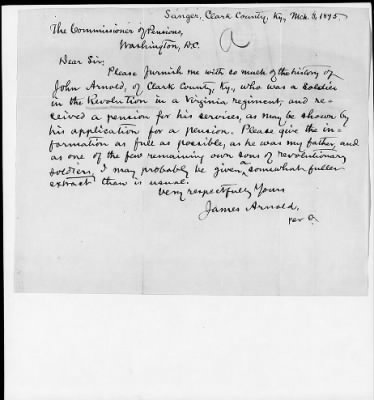 Sanger, Clark County, Ky., Mch. 8, 1895.
The Commissioner of Pensions,
Washington, D.C.
Dear Sir:
Please furnish me with so much of the history of
John Arnold, of Clark County, Ky., who was a soldier
in the Revolution in a Virginia regiment, and re-
ceived a pension for his services, as may be shown by
his application for a pension. Please give the in-
formation as full as possible, as he was my father, and
as one of the few remaining own sons of revolutionary
soldiers, I may probably be given a somewhat fuller
extract than is usual.
Very respectfully Yours
James Arnold,
per